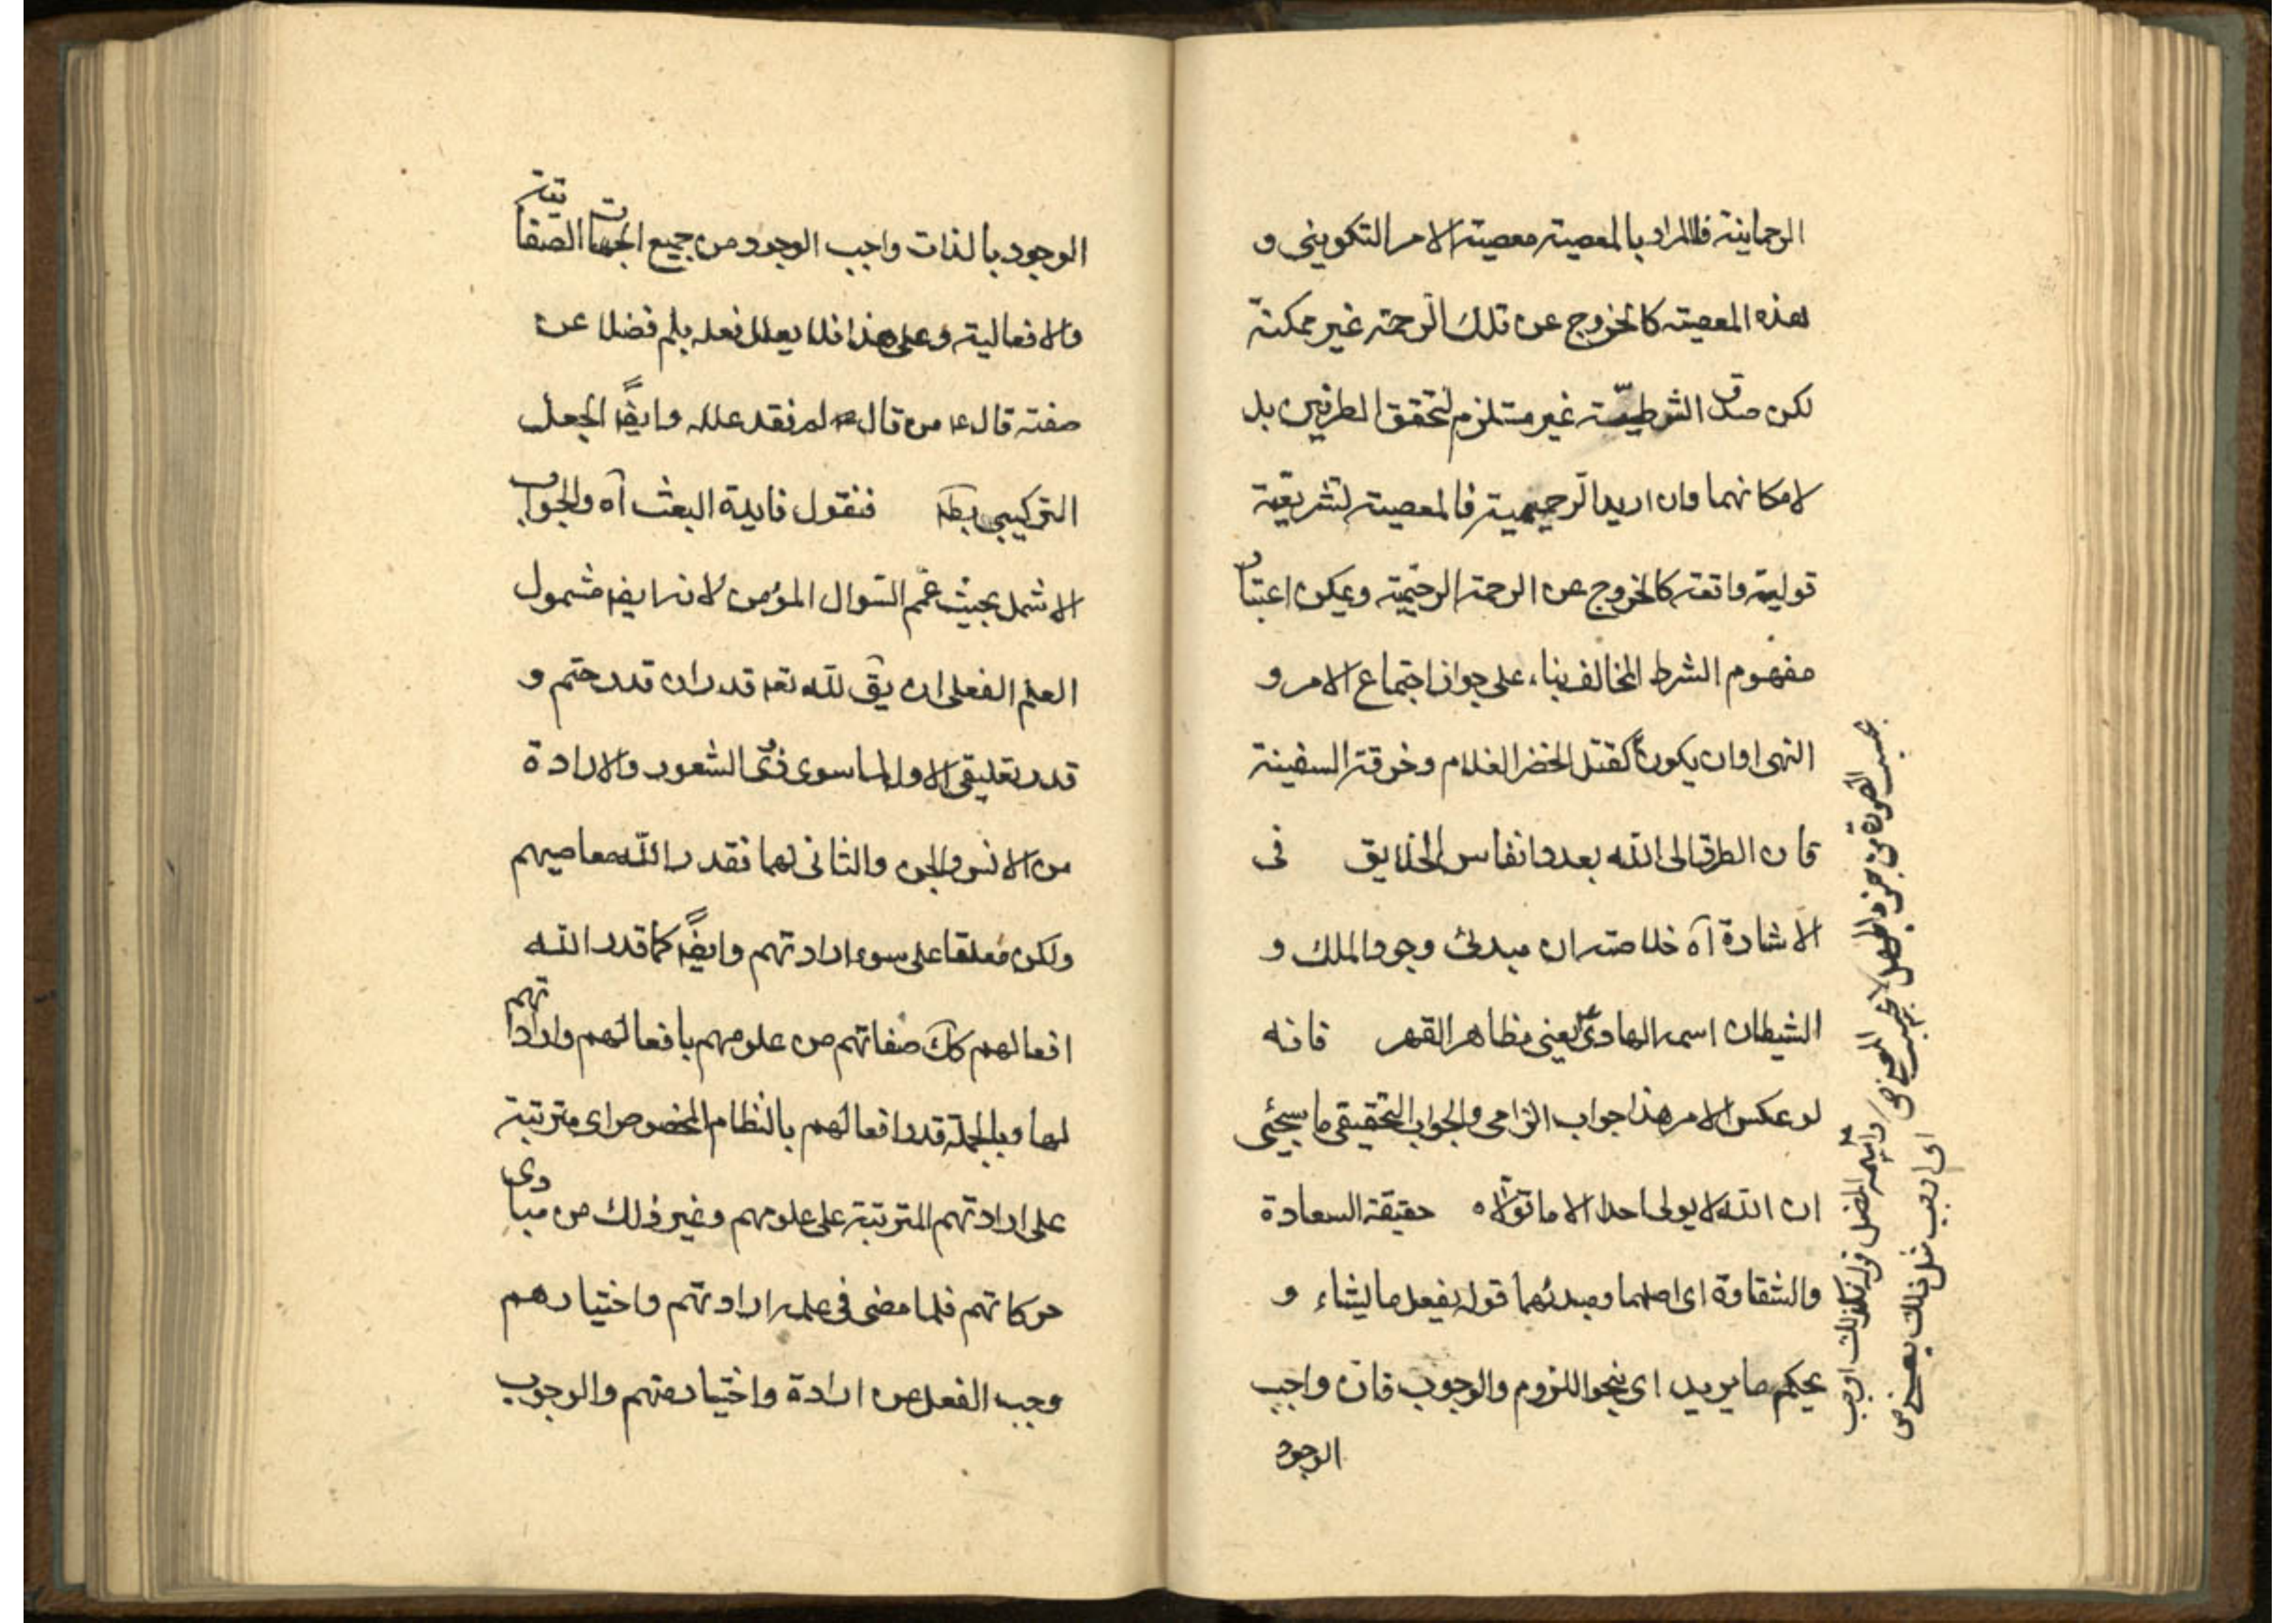 الرحمانية فالمراد بالمعصية معصية الامر التكويني و
هذه المعصية كالخروج عن تلك الرحمة غير ممكنة
لكن صدق الشرطية غير مستلزم لتحقق الطرفين بل
لامكانهما وان اريد الرحيمية فالمعصية لتشريعية
قولية واقعة كالخروج عن الرحمة الرحيمية ويمكن اعتبار
مفهوم الشرط المخالف بناء على جواز اجتماع الامر و
النهى اوان يكون كقتل الخضر الغلام وخرقة السفينة
فان الطرق الى الله بعدد انفاس الخلايق في
الاشارة آه خلاصته ان مبدئ وجود الملك و
الشيطان اسمه الهادى يعنى مظاهر القهر فانه
لو عكس الامر هذا جواب الزامى والجواب التحقيقى ما سيجئى
ان الله لا يولى احدا الا ما تولاه حقيقة السعادة
والشقاوة اى اصلهما ومبدئهما قوله يفعل ما يشاء و
يحكم ما يريد اى بنحو اللزوم والوجوب فان واجب
الوجود
بحسب الصورة
اى اوجب مثل ذلك
الوجود بالذات واجب الوجود من جميع الجهات الصفاتية
والافعالية وعلى هذا فلا يعلل فعله بلم فضلا عن
صفته قال ع من قال لم فقد علله وايضاً الجعل
التركيبى بط فنقول فايدة البعث آه والجواب
الاشمل بحيث عمّ السؤال المؤمن لانه ايضا مشمول
العلم الفعلى ان يق لله تعا قدران قدر حتم و
قدر تعليقى الاول لما سوى ذوى الشعور والارادة
من الانس والجن والثانى لهما فقدر الله معاصيهم
ولكن معلقا على سوء ارادتهم وايضاً كما قدر الله
افعالهم كك صفاتهم من علومهم بافعالهم وارادتهم
لها وبالجملة قدر افعالهم بالنظام المخصوص اى مترتبة
على ارادتهم المترتبة على علومهم وغير ذلك من مبادى
حركاتهم فلما مضى في علمه ارادتهم واختيارهم
وجب الفعل عن ارادة واختيار منهم والوجوب